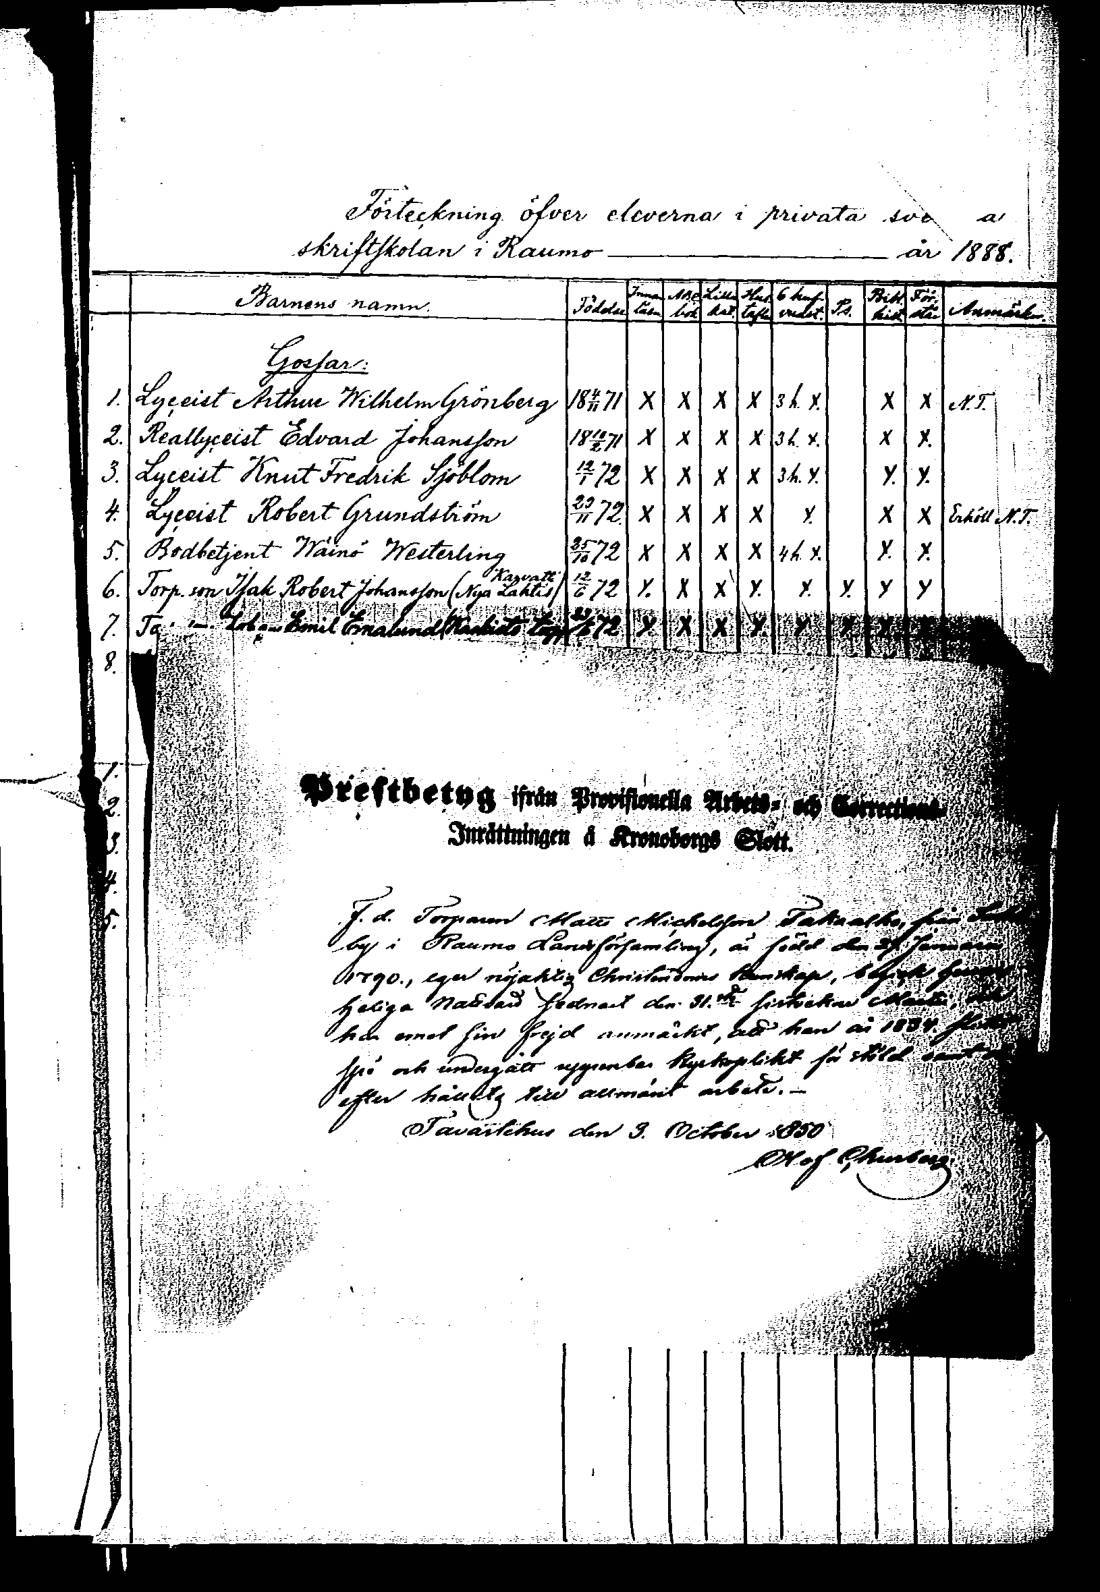 Förteckning öfver eleverna i privata sve a
skriftskolan i Raumo — år 1888.
Barnens namn. Födelse Innan läsn ABC bok Lilla kat. Hus tafla 6 huf- vudst. Ps. Bibl. hist För- stå Anmärkn.
Gossar:
1. Lyceist Arthur Wilhelm Grönberg 18 4/11 71 X X X X 3 h. X. X X N.T.
2. Reallyceist Edvard Johansson 18 10/2 71 X X X X 3 h. X. X X.
3. Lyceist Knut Fredrik Sjöblom 12/1 72 X X X X 3 h. X. X. X.
4. Lyceist Robert Grundström 23/11 72 X X X X X. X X Erhöll N.T.
5. Bodbetjent Wäinö Westerling 25/10 72 X X X X 4 h. X. X. X.
6. Torp. son Isak Robert Johansson (Nya Lahtis) 12/6 72 X. X X X. X. X. X X
7. Emil 72 X. X X X. X X X X
8.
1.
2.
3.
4.
5.
Prestbetyg ifrån Provisionella Arbets- och Corrections-
Inrättningen å Kronoborgs Slott.
F. d. Torparen Matts Michelsson från
by i Raumo Landsförsamling, är född den Januari
1790., eger nöjaktig Christendoms kunskap, begick
heliga Nattvard den 31. sistlidne Martii,
har emot sin frejd anmärkt, att han år 1834.
och undergått uppenbar Kyrkoplikt för stöld samt
efter till allmänt arbete. —
Tavastehus den 3. October 1850
Olof